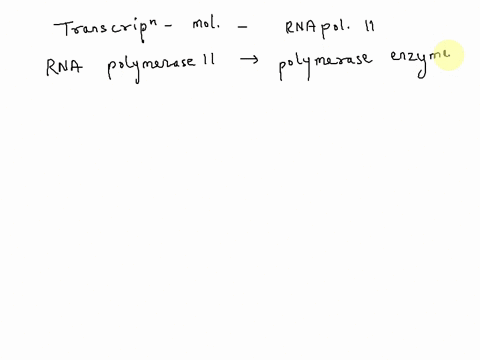 Transcripⁿ - mol. - RNA pol. II
RNA polymerase II → polymerase enzyme